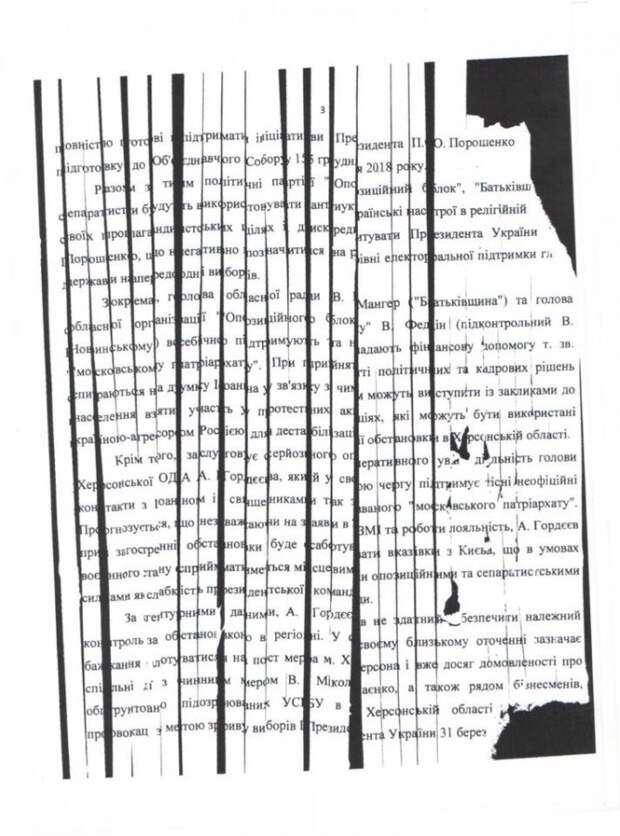 3
повністю готові підтримати ініціативи Президента П.О. Порошенко
підготовку до Об'єднавчого Собору 15 грудня 2018 року.
Разом з тим політичні партії "Опозиційний блок", "Батьківщ
сепаратисти будуть використовувати антиукраїнські настрої в релігійній
своїх пропагандистських цілях і дискредитувати Президента України
Порошенко, що негативно позначитися на рівні електоральної підтримки гл
держави напередодні виборів.
Зокрема, голова обласної ради В. Мангер ("Батьківщина") та голова
обласної організації "Опозиційного блоку" В. Федін (підконтрольний В.
Новинському) всебічно підтримують та надають фінансову допомогу т. зв.
"московському патріархату". При прийнятті політичних та кадрових рішень
спираються на думку Іоанна у зв'язку з чим можуть виступити із закликами до
населення взяти участь у протестних акціях, які можуть бути використані
країною-агресором Росією для дестабілізації обстановки в Херсонській області.
Крім того, заслуговує серйозного оперативного уваги діяльність голови
Херсонської ОДА А. Гордєєва, який у свою чергу підтримує тісні неофіційні
контакти з Іоанном і священиками так званого "московського патріархату".
Прогнозується, що незважаючи на заяви в ЗМІ та роботи лояльність, А. Гордєєв
при загостренні обстановки буде саботувати вказівки з Києва, що в умовах
воєнного стану сприйматиметься місцевими опозиційними та сепаратистськими
силами як слабкість президентської команди.
За агентурними даними, А. Гордєєв не здатний забезпечити належний
контроль за обстановкою в регіоні. У своєму близькому оточенні зазначає
бажання готуватися на пост мера м. Херсона і вже досяг домовленості про
спільні дії з чинним мером В. Миколаєнко, а також рядом бізнесменів,
обґрунтовано підозрюваних УСБУ в Херсонській області
провокац з метою зриву виборів Президента України 31 берез